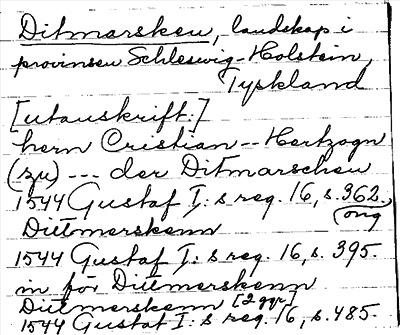 Ditmarsken, landskap i
provinsen Schleswig-Holstein,
Tyskland
[utanskrift:]
hern Cristian -- Hertzogn
(zu) --- der Ditmarschen
1544 Gustaf I:s reg. 16, s. 362.
(orig
Dittmerskenn
1544 Gustaf I:s reg. 16, s. 395.
in för Dittmerskenn
Dittmerskenn [2 ggr]
1544 Gustaf I:s reg. 16, s. 485.